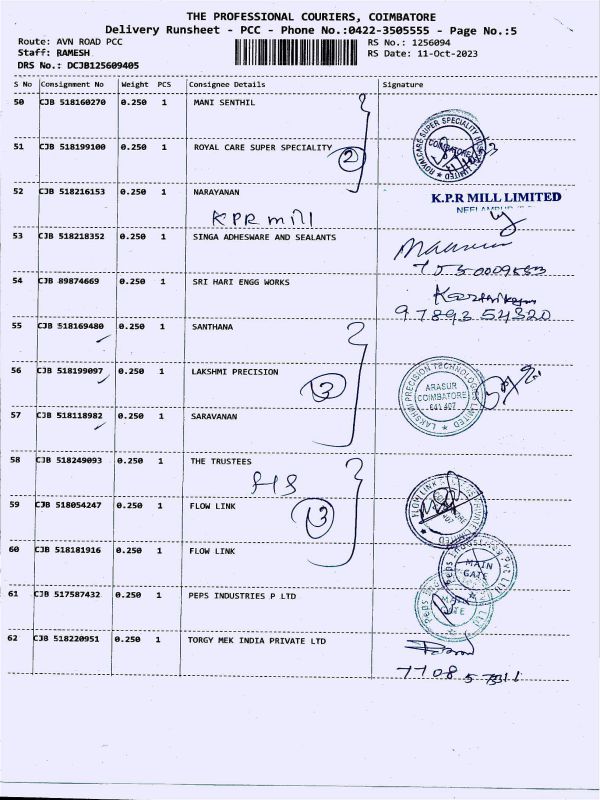 THE PROFESSIONAL COURIERS, COIMBATORE
Delivery Runsheet - PCC - Phone No.:0422-3505555 - Page No.:5
Route: AVN ROAD PCC RS No.: 1256094
Staff: RAMESH RS Date: 11-Oct-2023
DRS No.: DCJB125609405
S No Consignment No Weight PCS Consignee Details Signature
50 CJB 518160270 0.250 1 MANI SENTHIL
51 CJB 518199100 0.250 1 ROYAL CARE SUPER SPECIALITY
2
ROYALCARE SUPER SPECIALITY LIMITED
COIMBATORE
52 CJB 518216153 0.250 1 NARAYANAN K.P.R MILL LIMITED
KPR mill
53 CJB 518218352 0.250 1 SINGA ADHESWARE AND SEALANTS
54 CJB 89874669 0.250 1 SRI HARI ENGG WORKS
97893 54320
55 CJB 518169480 0.250 1 SANTHANA
56 CJB 518199097 0.250 1 LAKSHMI PRECISION
3
LAKSHMI PRECISION TECHNOLOGIES LIMITED
ARASUR
COIMBATORE
641 407
57 CJB 518118982 0.250 1 SARAVANAN
58 CJB 518249093 0.250 1 THE TRUSTEES
59 CJB 518054247 0.250 1 FLOW LINK
3
FLOW LINK PRIVATE LIMITED
60 CJB 518181916 0.250 1 FLOW LINK
MAIN
GATE
61 CJB 517587432 0.250 1 PEPS INDUSTRIES P LTD
MAIN
GATE
62 CJB 518220951 0.250 1 TORGY MEK INDIA PRIVATE LTD